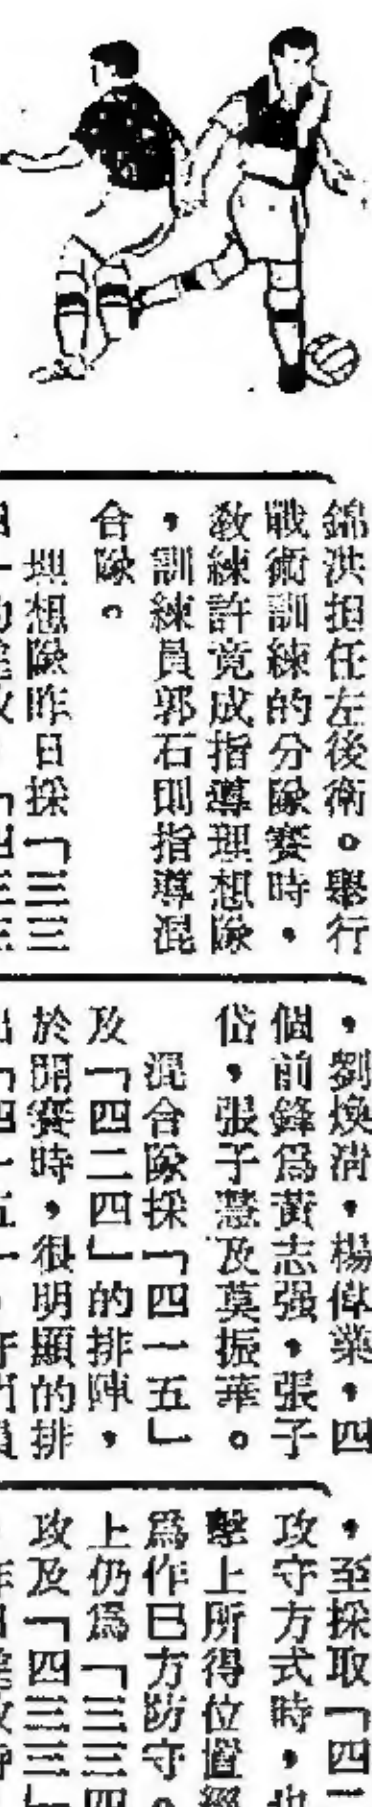 錦洪担任左後衛。舉行
戰術訓練的分隊賽時，
敎練許竟成指導理想隊
，訓練員郭石則指導混
合隊。
理想隊昨日採「三三
，劉煥清，楊偉業，四
個前鋒爲黃志强，張子
岱，張子慧及莫振華。
混合隊採「四一五」
及「四二四」的排陣，
於開賽時，很明顯的排
，至採取「四
攻守方式時，
擊上所得位置
爲作巳方防守。
上仍爲「三三四
攻及「四三三」